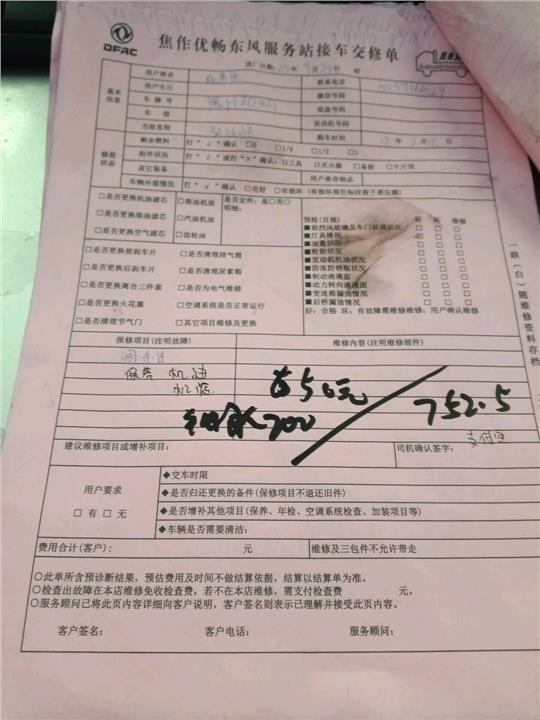 DFAC
焦作优畅东风服务站接车交修单
进厂日期: 年 9月 日 时
基本信息
用户姓名 联系电话
用户生日 微信号码
车牌号 底盘号码
车 型 发动机号码
当前里程 购车时间 年 月 日
修前状态
剩余燃料 打"√"确认 □0 □1/4 □1/2 □1
附件状况 打"√"或打"×"确认:□工具 □灭火器 □备胎 □千斤顶
其它装备 用户寄存物品
车辆外部情况 打"√"确认 □完好 □有损坏(有损坏部位标注有于表左框)
□是否更换机油滤芯 □柴油机油 是否定件:是□否□
□是否更换柴油滤芯 □汽油机油 明细:
□是否更换空气滤芯 □齿轮油
预检(目视) 好 坏 维修
■前挡风玻璃及车门玻璃状况 □ □ □
■灯具情况 □ □ □
■油量状况 □ □ □
■轮胎状况 □ □ □
■发动机机油状况 □ □ □
■防冻防锈瓶状况 □ □ □
■制动液液面 □ □ □
■动力转向液液面 □ □ □
■变速箱漏油情况 □ □ □
■后桥漏油情况 □ □ □
好:合格 坏:有故障需维修维修:用户确认维修
□是否更换前刹车片 □是否清理排气筒
□是否更换后刹车片 □是否清理尿素箱
□是否更换离合三件套 □是否为电气维修
□是否更换火花塞 □空调系统是否正常运行
□是否清理节气门 □其它项目维修及更换
一联(白)随维修资料存档
报修项目(注明故障) 维修内容(注明维修部件)
保养 机油
机滤
50元
200
752.5
支付宝
建议维修项目或增补项目: 司机确认签字:
用户要求
□有 □无
◆交车时限
◆是否归还更换的备件(保修项目不退还旧件)
◆是否增补其他项目(保养、年检、空调系统检查、加装项目等)
◆车辆是否需要清洁:
费用合计(客户): 元 维修及三包件不允许带走
○此单所含预诊断结果,预估费用及时间不做结算依据,结算以结算单为准。
○检查出故障在本店维修免收检查费,若不在本店维修,需支付检查费 元。
○服务顾问已将此页内容详细向客户说明,客户签名则表示已理解并接受此页内容。
客户签名: 客户电话: 服务顾问: